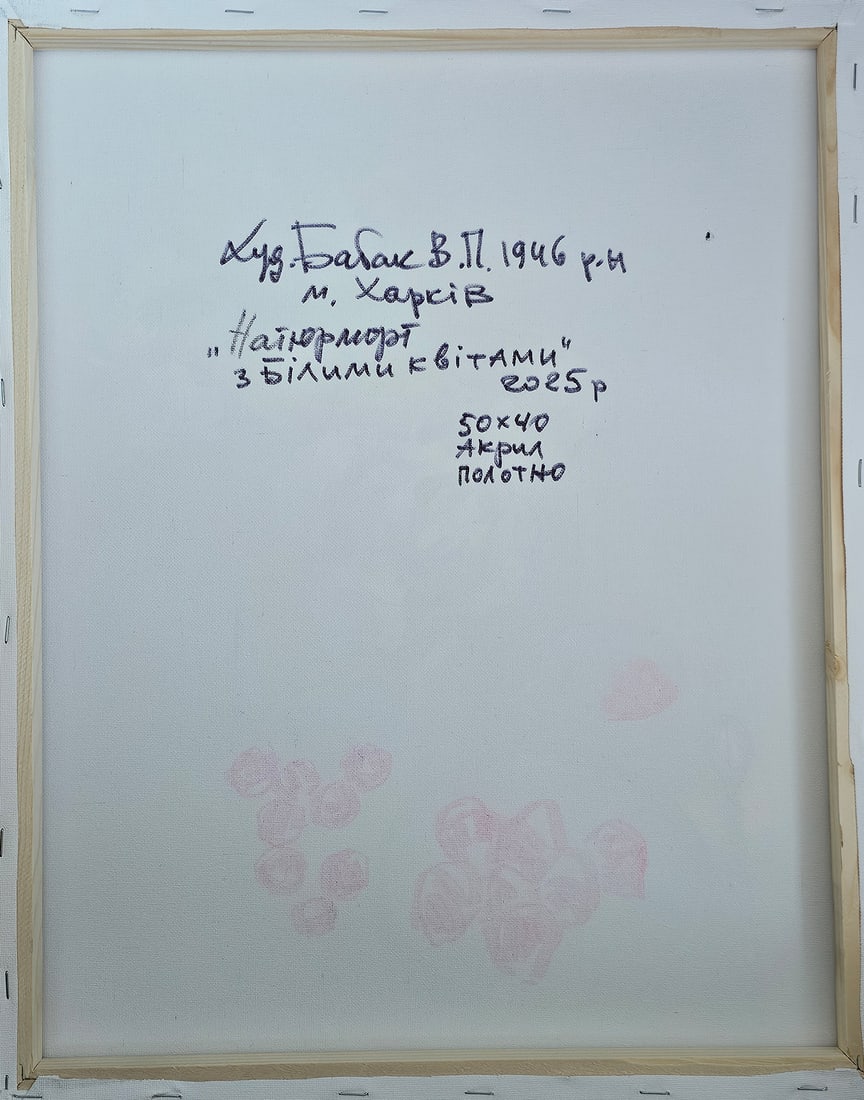 Худ. Бабак В.П. 1946 р.н
м. Харків
"Натюрморт
з Білими квітами"
2025р
50х40
Акрил
полотно